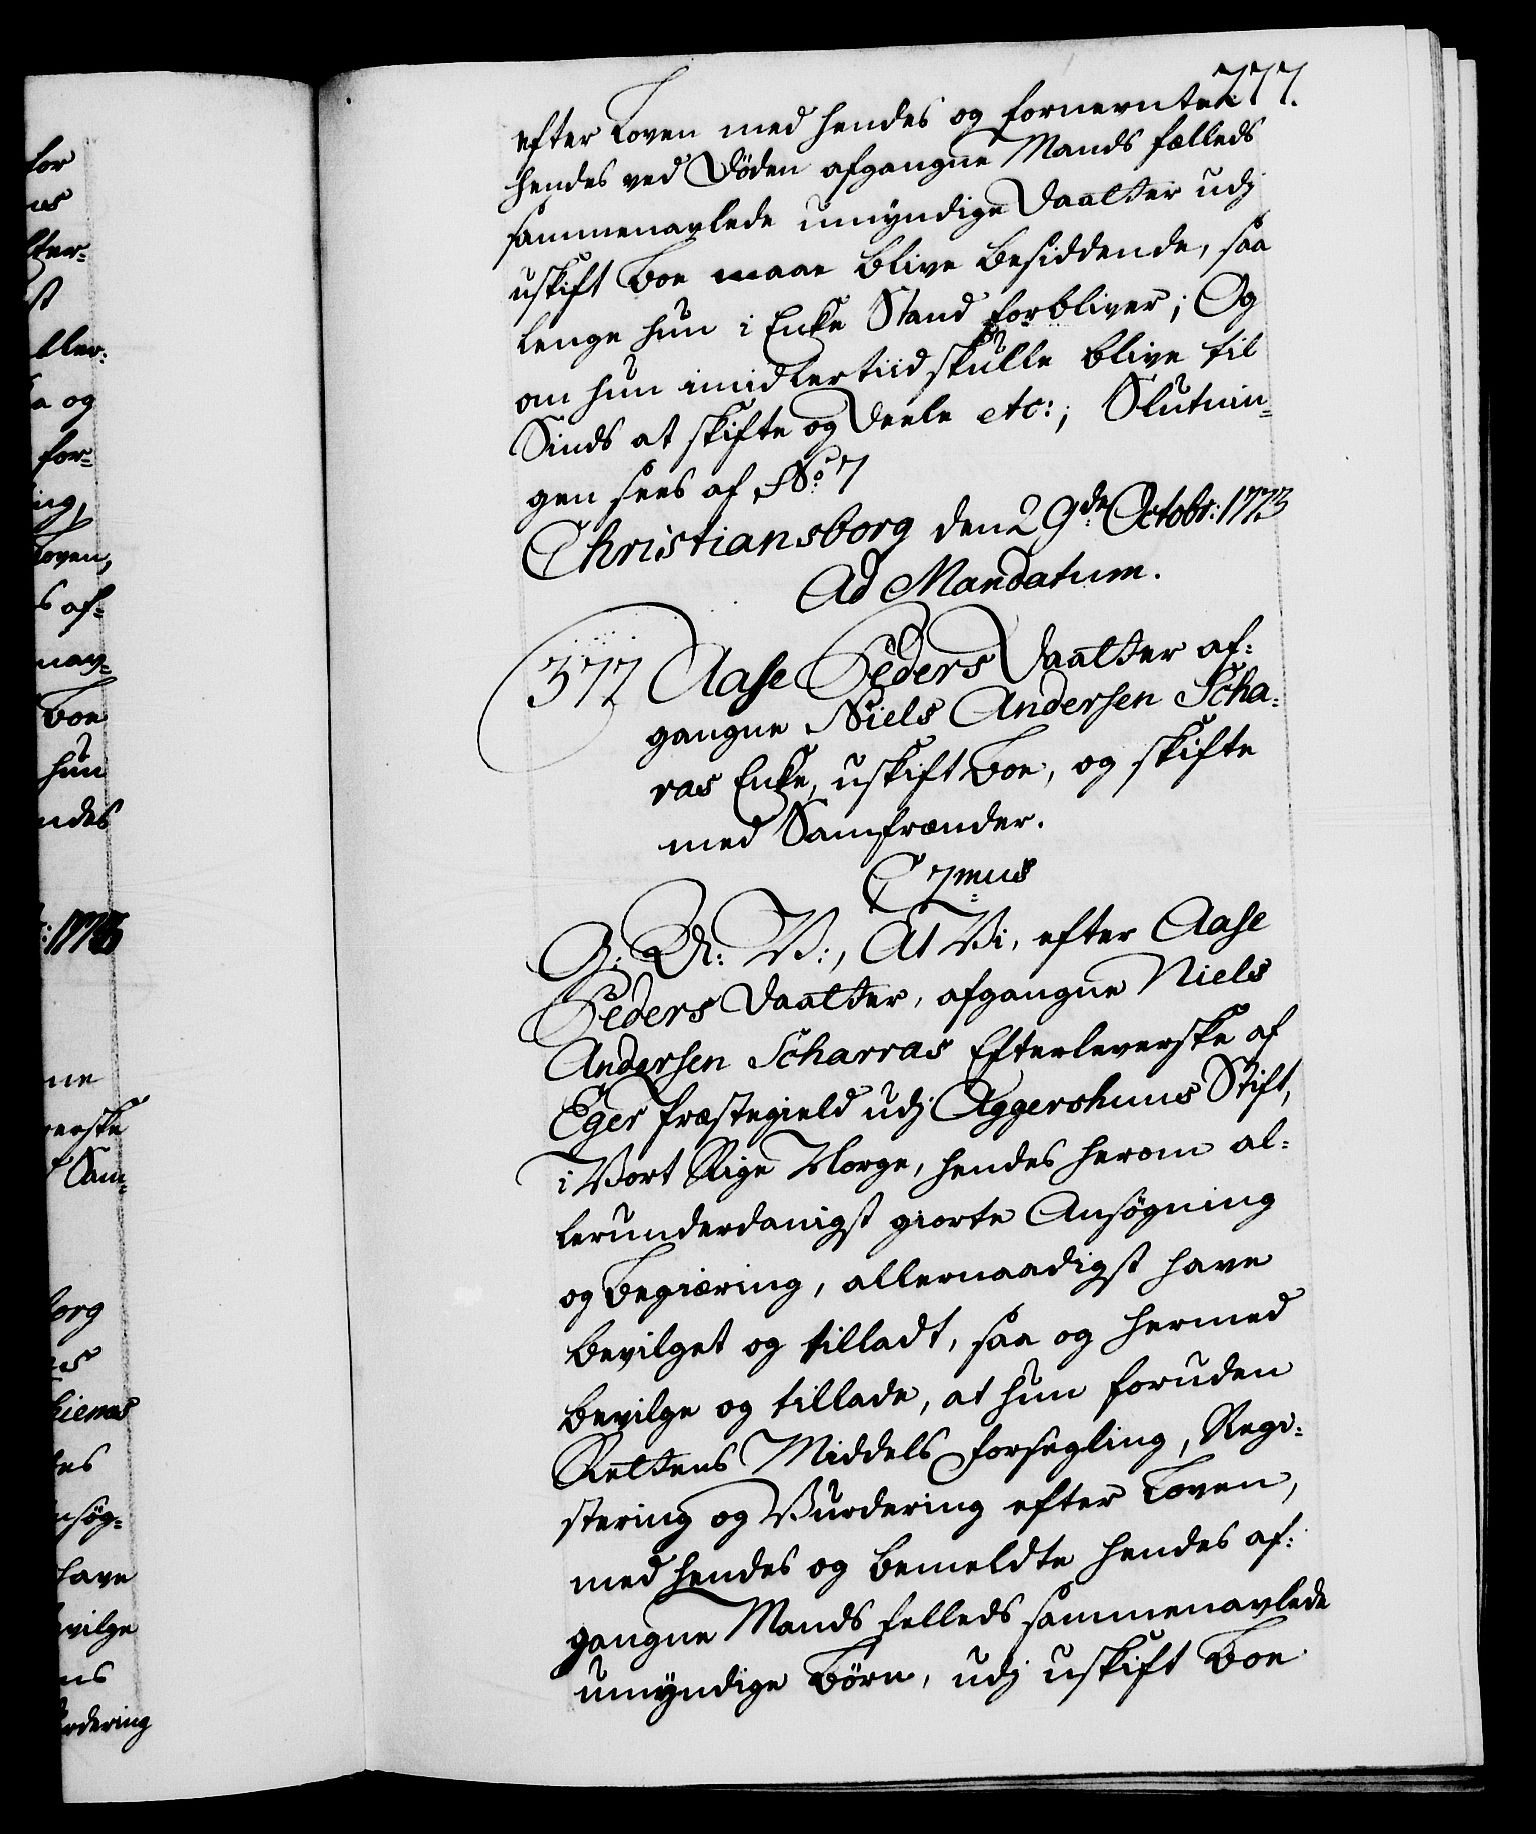 777.
efter Loven med hendes og fornevnte
hendes ved Døden afgangne Mands fælleds
sammenavlede umyndige Daatter udj
uskift Boe maae blive besiddende, saa
lenge hun i Enke Stand forbliver; Og
om hun imidlertiid skulle blive til
Sinds at skifte og Deele etc:, Slutnin-
gen sees af No 7
Christiansborg den 29de Octobr: 1773
Ad Mandatum.
377 Aase Peders Daatter af-
gangne Niels Andersen Scha-
ras Enke, uskift Boe, og skifte
med Samfrænder.
C 7mus
G: A: V:, At Vi, efter Aase
Peders Daatter, afgangne Niels
Andersen Scharras Efterleverske af
Eger Præstegield udj Aggershuus Stift,
i Vort Rige Norge, hendes herom al-
lerunderdanigst giorte Ansøgning
og Begiæring, allernaadigst have
bevilget og tilladt, saa og hermed
bevilge og tillade, at hun foruden
Rettens Middels Forsegling, Regi-
stering og Vurdering efter Loven,
med hendes og bemeldte hendes af-
gangne Mands felleds sammenavlede
umyndige Børn, udj uskift Boe